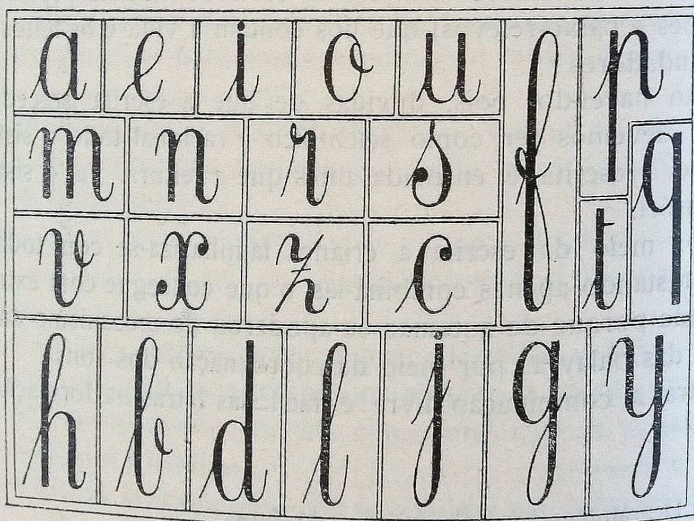 a e i o u f p
m n r s q
v x z c t
h b d l j g y